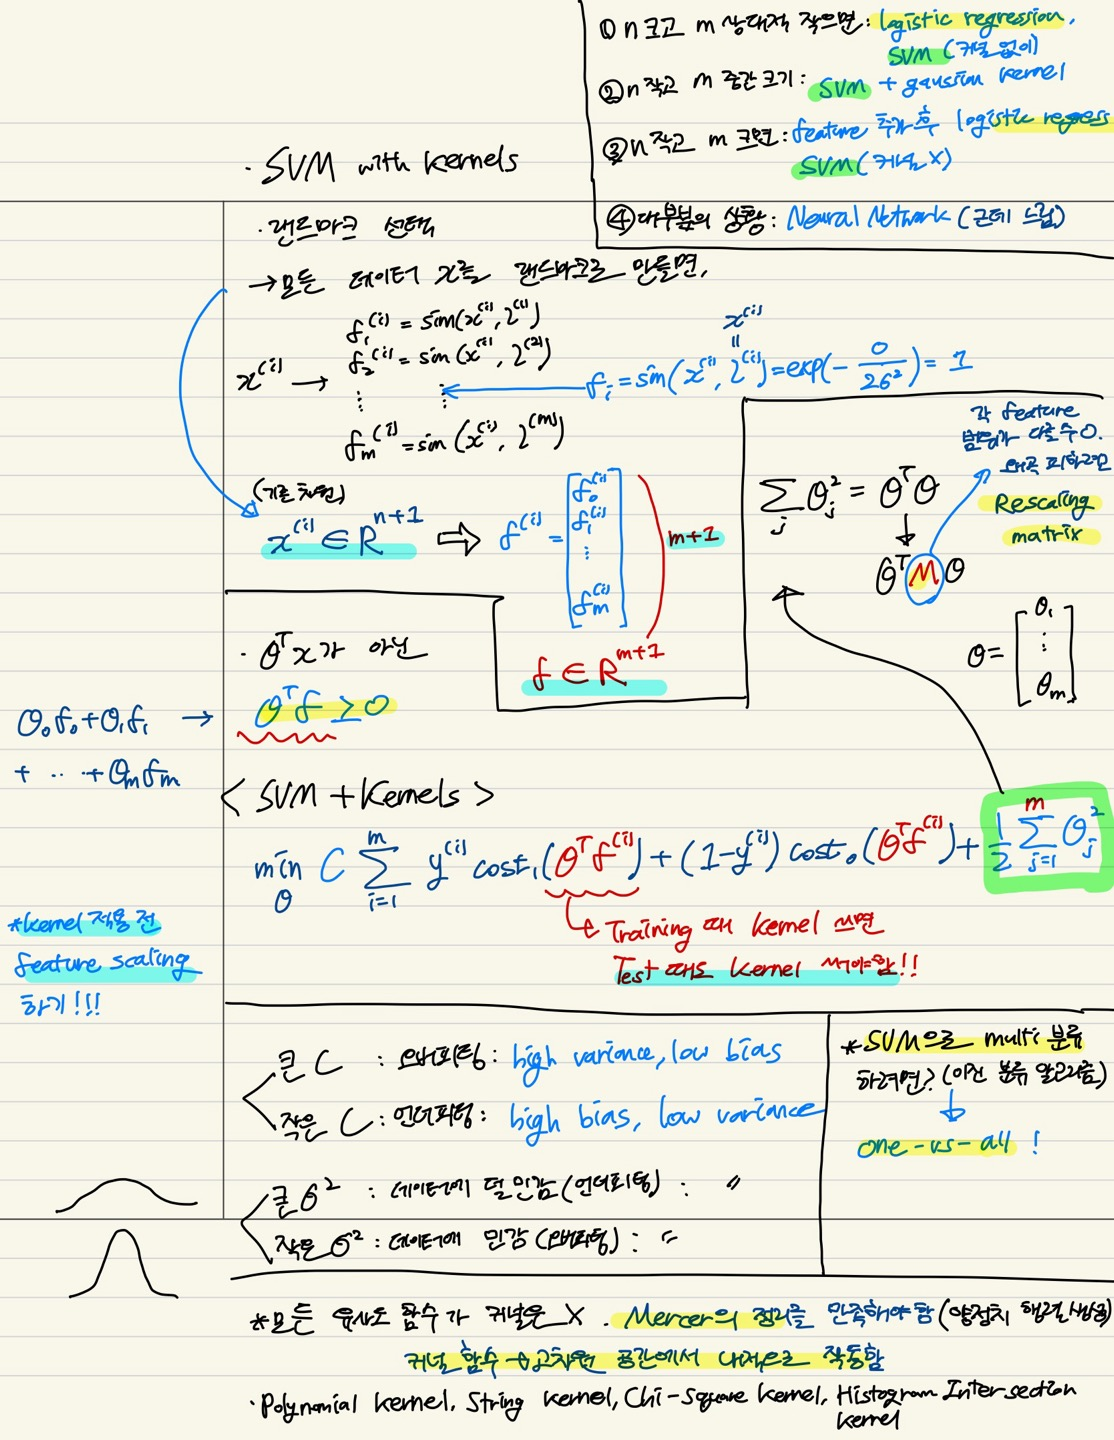 ① n 크고 m 상대적 작으면: logistic regression,
SVM (커널 없이)
② n 작고 m 중간 크기: SVM + gaussian kernel
③ n 작고 m 크면: feature 추가 후 logistic regress
SVM (커널 X)
④ 대부분의 상황: Neural Network (근데 느림)
· SVM with kernels
· 랜드마크 선택
→ 모든 데이터 x를 랜드마크로 만들면,
x⁽ⁱ⁾ →
f₁⁽ⁱ⁾ = sim(x⁽ⁱ⁾, l⁽¹⁾)
f₂⁽ⁱ⁾ = sim(x⁽ⁱ⁾, l⁽²⁾)
⋮ ⋮
fₘ⁽ⁱ⁾ = sim(x⁽ⁱ⁾, l⁽ᵐ⁾)
x⁽ⁱ⁾
=
fᵢ = sim(x⁽ⁱ⁾, l⁽ⁱ⁾) = exp(- 0/2σ²) = 1
(기존 차원)
x⁽ⁱ⁾ ∈ Rⁿ⁺¹ ⇒ f⁽ⁱ⁾ = [f₀⁽ⁱ⁾ f₁⁽ⁱ⁾ ⋮ fₘ⁽ⁱ⁾] m+1
f ∈ Rᵐ⁺¹
각 feature
범위가 다를 수 O.
왜곡 피하려면
Rescaling
matrix
∑ⱼ θⱼ² = θᵀθ
↓
θᵀMθ
θ = [θ₁ ⋮ θₘ]
· θᵀx가 아닌
θᵀf ≥ 0
θ₀f₀ + θ₁f₁ →
+ ··· + θₘfₘ
< SVM + Kernels >
min_θ C ∑ᵢ₌₁ᵐ y⁽ⁱ⁾ cost₁(θᵀf⁽ⁱ⁾) + (1-y⁽ⁱ⁾) cost₀(θᵀf⁽ⁱ⁾) + 1/2 ∑ⱼ₌₁ᵐ θⱼ²
Training 때 kernel 쓰면
Test 때도 kernel 써야함!!
*kernel 적용 전
feature scaling
하기!!!
큰 C : 오버피팅: high variance, low bias
작은 C : 언더피팅: high bias, low variance
큰 σ² : 데이터에 덜 민감 (언더피팅) : 〃
작은 σ² : 데이터에 민감 (오버피팅) : 〃
* SVM으로 multi 분류
하려면? (이건 분류 알고리즘)
↓
one-vs-all !
*모든 유사도 함수가 커널은 X. Mercer의 정리를 만족해야 함 (양정치 행렬 생성)
커널 함수 → 고차원 공간에서 내적으로 작동함
· Polynomial kernel, String kernel, Chi-square kernel, Histogram Intersection
kernel